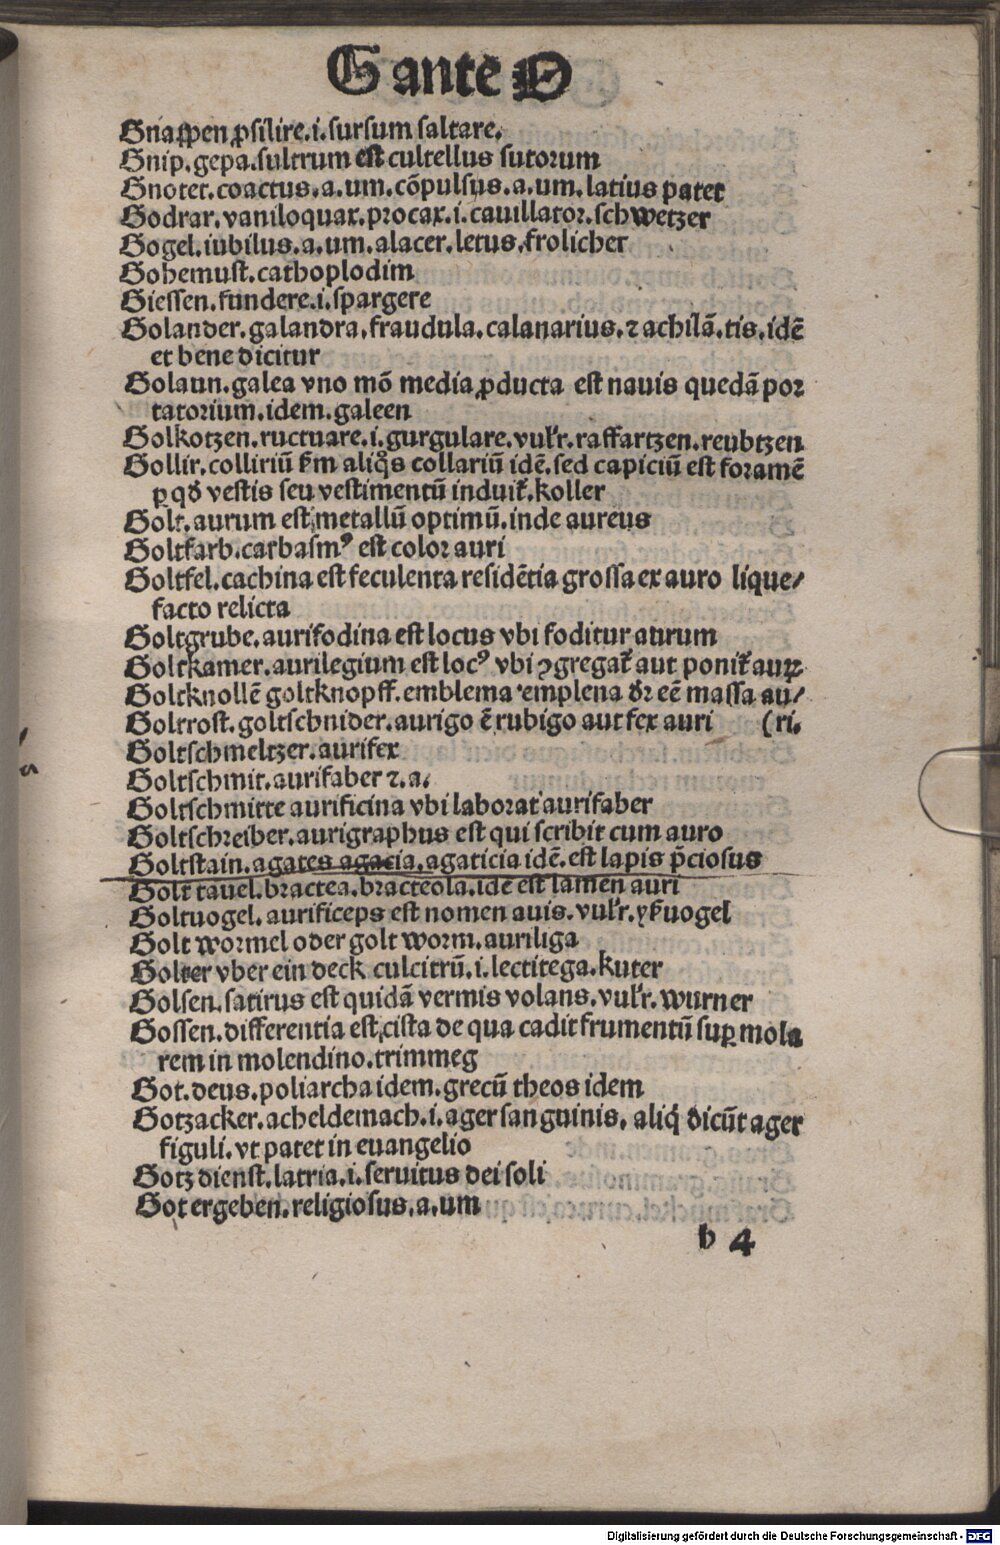 G ante O
Gnappen ꝓsilire.i.sursum saltare.
Gnip.gepa.sultrum est cultellus sutorum
Gnotet.coactus.a.um.cōpulsus.a.um.latius patet
Godrar.vaniloquax.procax.i.cauillator.schwetzer
Gogel.iubilus.a.um.alacer.letus.frolicher
Gohemust.cathoplodim
Giessen.fundere.i.spargere
Golander.galandra.fraudula.calanarius.⁊ achilā.tis.idē
et bene dicitur
Golaun.galea vno mō media ꝓducta est nauis quedā por
tatorium.idem.galeen
Golkotzen.ructuare.i.gurgulare.vulr̄.raffartzen.reubtzen
Gollir.colliriū fm̄ aliq̊s collariū idē.sed capiciū est foramē
ꝑ qd̄ vestis seu vestimentū induit̄.koller
Golt.aurum est metallū optimū.inde aureus
Goltfarb.carbasmꝰ est color auri
Goltfel.cachina est feculenta residētia grossa ex auro lique/
facto relicta
Goltgrube.aurifodina est locus vbi foditur aurum
Goltkamer.aurilegium est locꝰ vbi ꝯgregat̄ aut ponit̄ auꝝ
Goltknollē goltknopff.emblema emplena dr̄ eē massa au/
Goltrost.goltschnider.aurigo ē rubigo aut fex auri (ri.
Goltschmeltzer.aurifex
Goltschmit.aurifaber ⁊.a.
Goltschmitte aurificina vbi laborat aurifaber
Goltschreiber.aurigraphus est qui scribit cum auro
Goltstain.agates agacia.agaticia idē.est lapis p̄ciosus
Golt tauel.bractea.bracteola.idē est lamen auri
Goltuogel.aurificeps est nomen auis.vulr̄.yßuogel
Golt wormel oder golt worm.auriliga
Golter vber ein deck culcitrū.i.lectitega.kuter
Golsen.satirus est quidā vermis volans.vulr̄.wurner
Gossen.differentia est cista de qua cadit frumentū suꝑ mola
rem in molendino.trimmeg
Got.deus.poliarcha idem.grecū theos idem
Gotzacker.acheldemach.i.ager sanguinis, aliq̄ dicūt ager
figuli.vt patet in euangelio
Gotz dienst.latria.i.seruitus dei soli
Got ergeben.religiosus.a.um
h 4
Digitalisierung gefördert durch die Deutsche Forschungsgemeinschaft - DFG